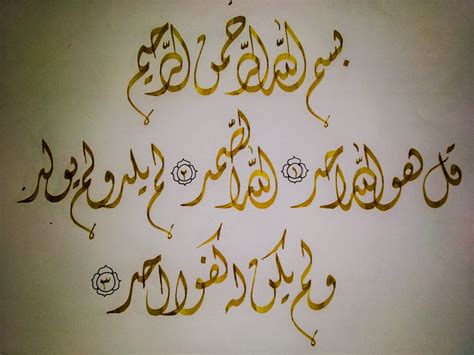 بسم الله الرحمن الرحيم
قل هو الله احد ١ الله الصمد ٢ لم يلد ولم يولد
ولم يكن له كفوا احد ٣